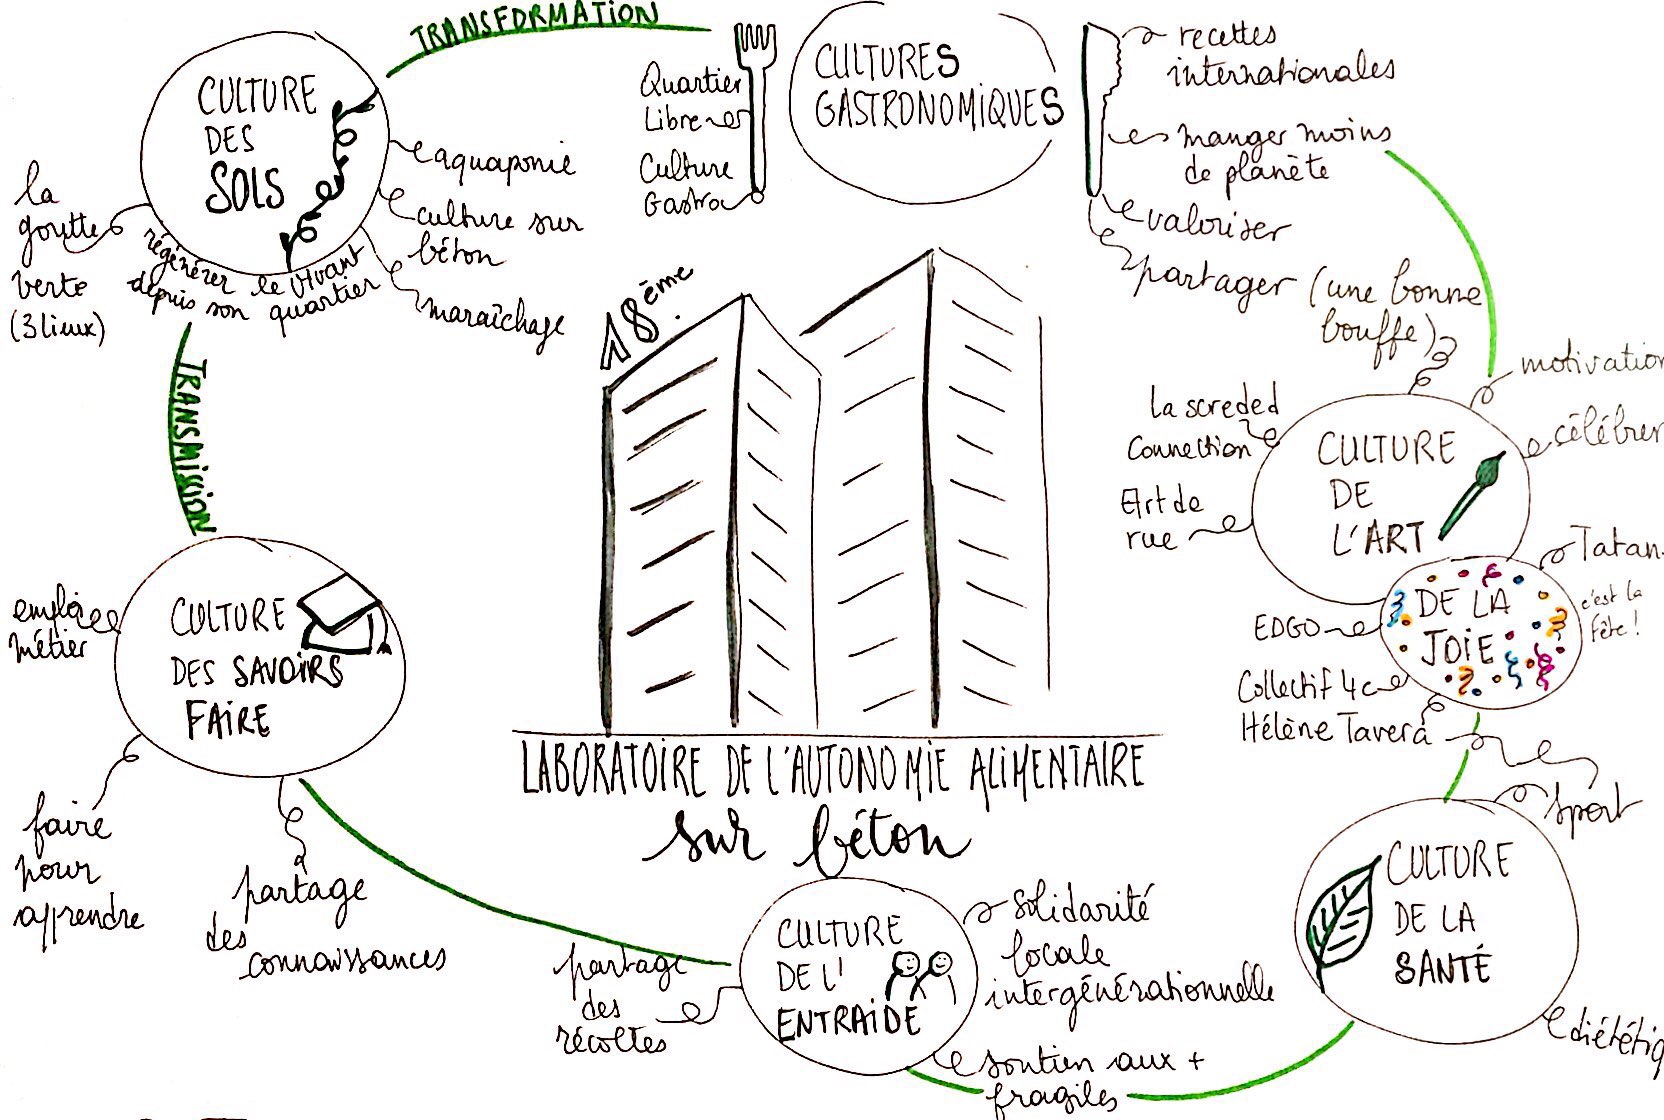 TRANSFORMATION
CULTURE
DES
SOLS
la
goutte
verte
(3 lieux)
régénérer le vivant
depuis son quartier
aquaponie
culture sur
béton
maraîchage
Quartier
Libre
Culture
Gastro
CULTURES
GASTRONOMIQUES
recettes
internationales
manger moins
de planète
valoriser
partager (une bonne
bouffe)
18ème
TRANSMISSION
motivation
célébrer
La screded
Connection
Art de
rue
CULTURE
DE
L'ART
DE LA
JOIE
Tatan
c'est la
fête!
EDGO
Collectif 4c
Hélène Tavera
emploi
métier
CULTURE
DES SAVOIRS
FAIRE
faire
pour
apprendre
partage
des
connaissances
LABORATOIRE DE L'AUTONOMIE ALIMENTAIRE
sur béton
sport
CULTURE
DE LA
SANTÉ
diététiq
CULTURE
DE L'
ENTRAIDE
partage
des
récoltes
solidarité
locale
intergénérationnelle
soutien aux +
fragiles